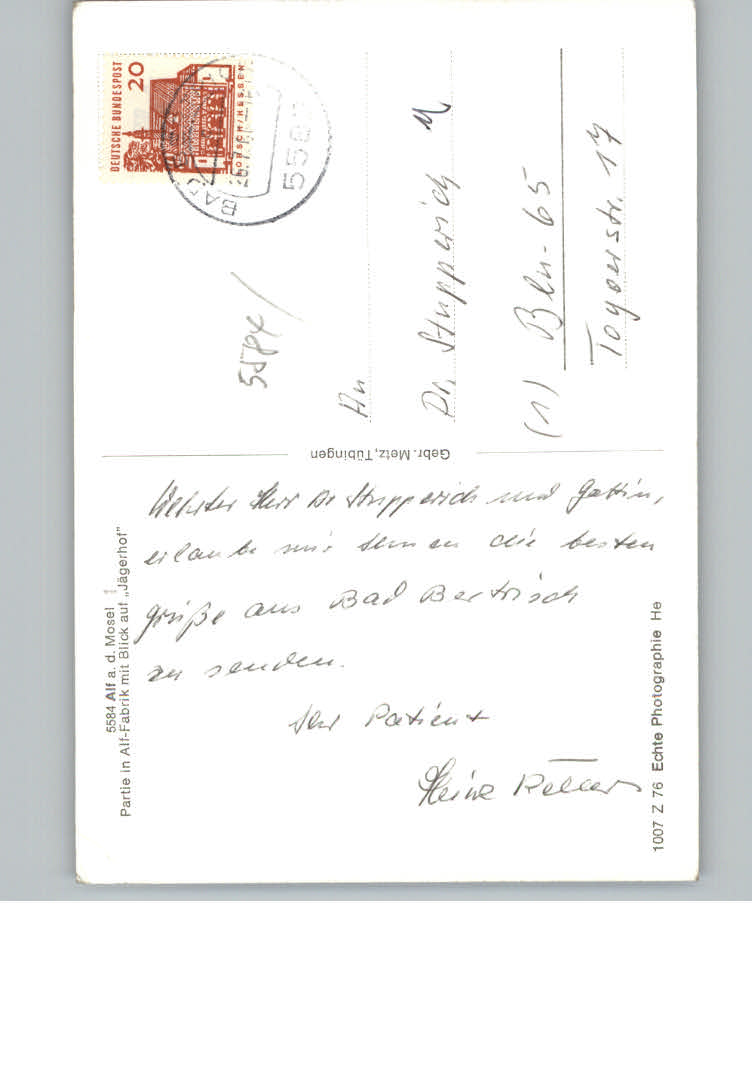 5584 Alf a. d. Mosel
Partie in Alf-Fabrik mit Blick auf „Jägerhof"
Herr Dr Stupperich und Gattin,
erlaube mir Ihnen die besten
Grüße aus Bad Bertrich
zu senden.
Ihr Patient
Heinz
1007 Z 76 Echte Photographie He
Gebr. Metz, Tübingen
DEUTSCHE BUNDESPOST
20
LORSCH/HESSEN
BAD
558
5584/
An
Dr. Stupperich
(1) Bln-65
Togoerstr. 17